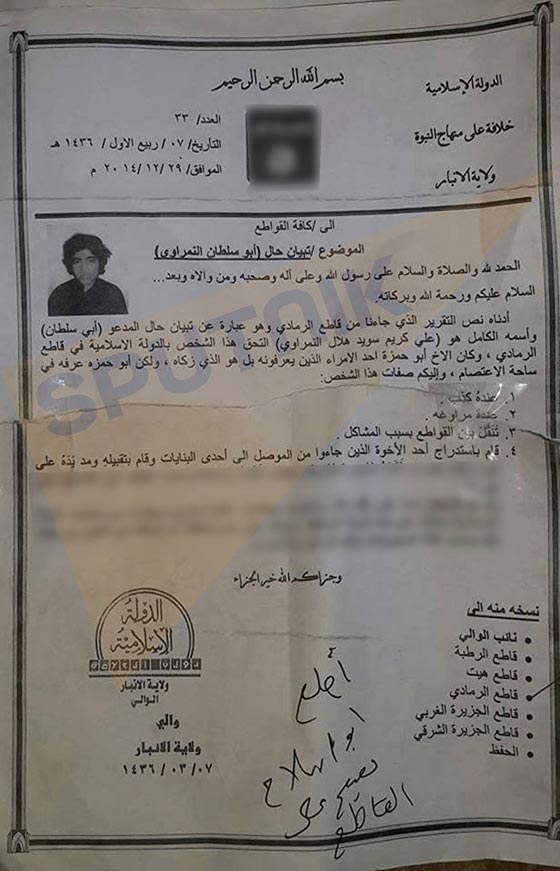 الدولة الإسلامية
خلافة على منهاج النبوة
ولاية الانبار
بسم الله الرحمن الرحيم
العدد/ ٣٣
التأريخ/ ٠٧ / ربيع الاول / ١٤٣٦ هـ
الموافق/ ٢٩ /١٢/ ٢٠١٤ م
الى /كافة القواطع
الموضوع /تبيان حال (أبو سلطان النمراوي)
الحمد لله والصلاة والسلام على رسول الله وعلى آله وصحبه ومن والاه وبعد...
السلام عليكم ورحمة الله وبركاته.
أدناه نص التقرير الذي جاءنا من قاطع الرمادي وهو عبارة عن تبيان حال المدعو (أبي سلطان)
وأسمه الكامل هو (علي كريم سويد هلال النمراوي) التحق هذا الشخص بالدولة الاسلامية في قاطع
الرمادي ، وكان الاخ أبو حمزة احد الامراء الذين يعرفونه بل هو الذي زكاه ، ولكن أبو حمزه عرفه في
ساحة الاعتصام ، وإليكم صفات هذا الشخص:
١. عنده كذب .
٢. عنده مراوغه .
٣. تنقل بين القواطع بسبب المشاكل .
٤. قام باستدراج أحد الأخوة الذين جاءوا من الموصل الى أحدى البنايات وقام بتقبيله ومد يَدَهُ على
وجزاكم الله خير الجزاء
نسخه منه الى
• نائب الوالي
• قاطع الرطبة
• قاطع هيت
• قاطع الرمادي
• قاطع الجزيرة الغربي
• قاطع الجزيرة الشرقي
• الحفظ
الدولة
الإسلامية
ولاية الانبار
الوالي
والي
ولاية الانبار
١٤٣٦ / ٠٣ / ٠٧
القاطع
SPUTNIK